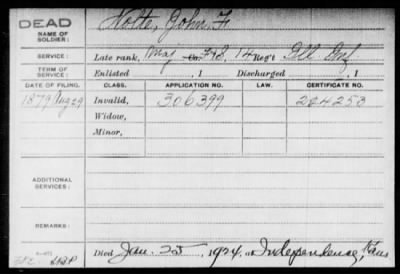 DEAD
NAME OF SOLDIER:
Nolte, John F.
SERVICE:
Late rank, Maj Co. F&S, 14 Reg't Ill Inf
TERM OF SERVICE:
Enlisted , 1 Discharged , 1
DATE OF FILING.
CLASS.
APPLICATION NO.
LAW.
CERTIFICATE NO.
1879 Aug 29
Invalid,
306399
204253
Widow,
Minor,
ADDITIONAL SERVICES:
REMARKS:
Died Jan. 25, 1924, at Independence, Kans